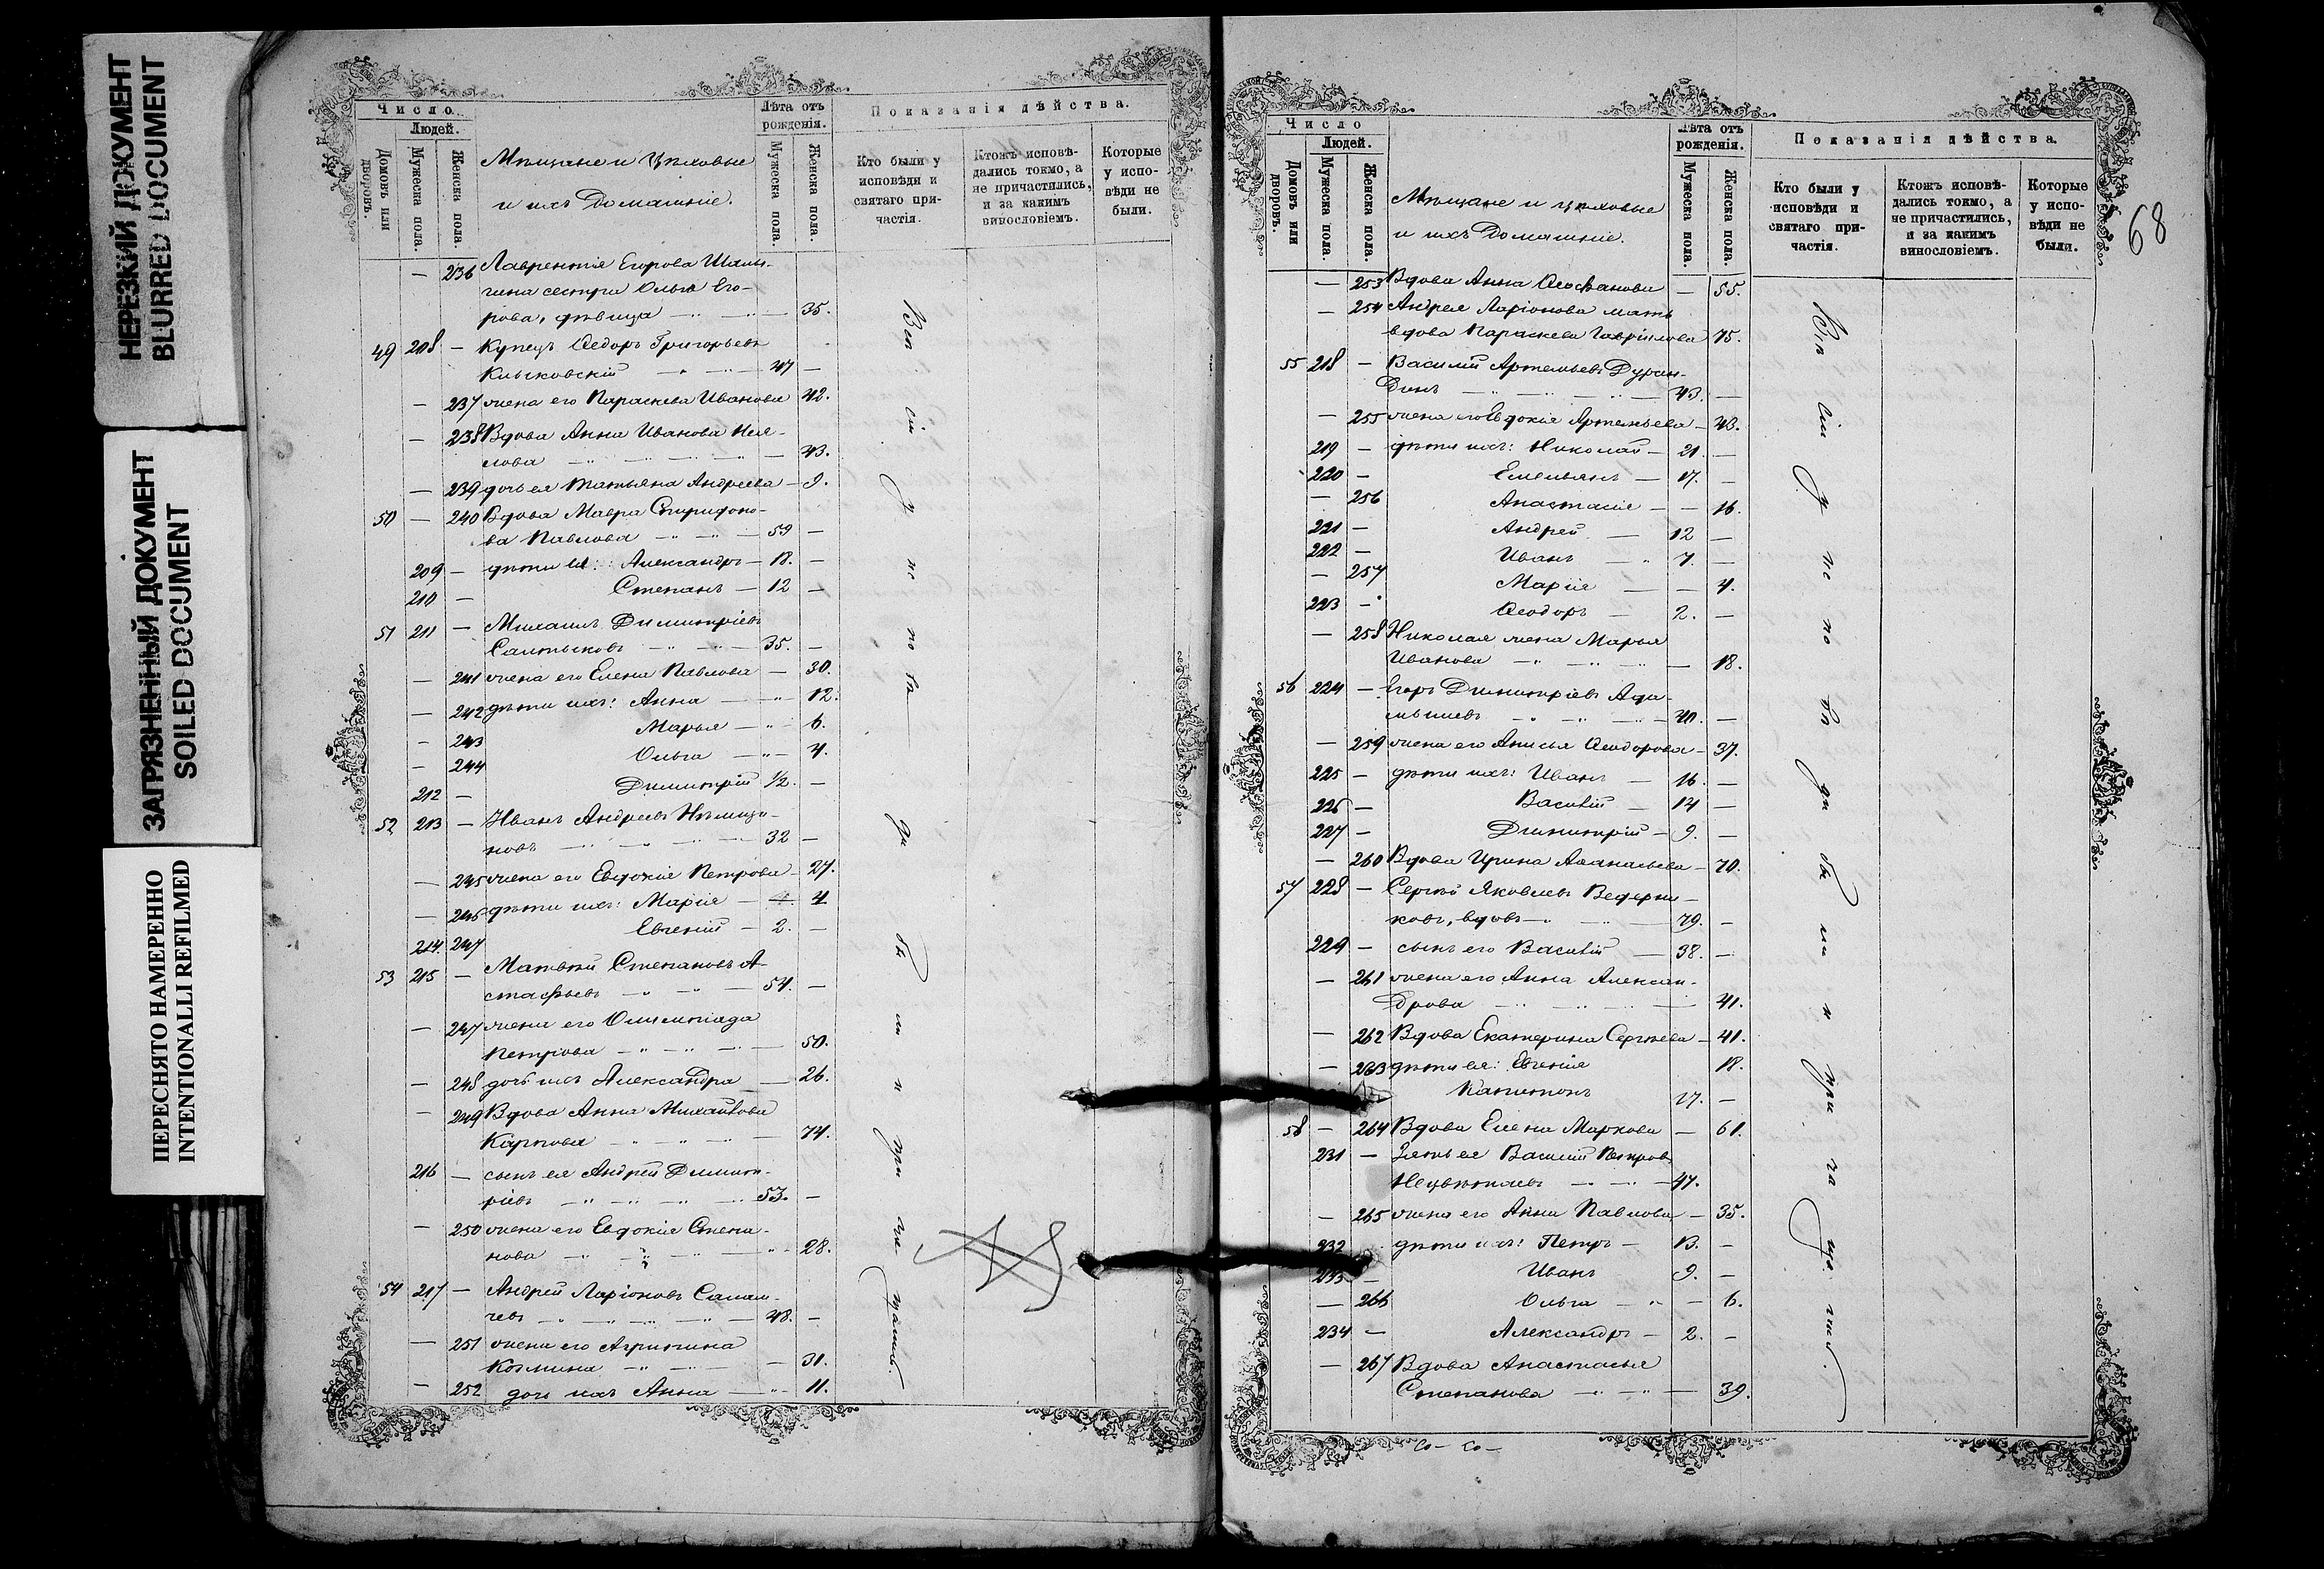 НЕРЕЗКИЙ ДОКУМЕНТ
BLURRED DOCUMENT
ЗАГРЯЗНЕННЫЙ ДОКУМЕНТ
SOILED DOCUMENT
ПЕРЕСНЯТО НАМЕРЕННО
INTENTIONALLI REFILMED
Число
Людей.
Домовъ или дворовъ.
Мужеска пола.
Женска пола.
Мѣщане и Цѣховые
и ихъ Домашніе.
Лѣта отъ рожденія.
Мужеска пола.
Женска пола.
Показанія дѣйства.
Кто были у исповѣди и святаго причастія.
Ктожъ исповѣдались токмо, а не причастились, и за какимъ винословіемъ.
Которые у исповѣди не были.
— 236 Лаврентія Егорова
сестра Ольга Его-
рова, дѣвица — 35.
49 208 — Купецъ Ѳедоръ Григорьевъ
Клыковскій — 47 —
— 237 жена его Параскева Иванова 42.
— 238 Вдова Анна Иванова
— 43.
— 239 дочь ея Татьяна Андреева — 9.
50 — 240 Вдова Мавра Спиридоно-
ва Павлова — 59 —
209 — дѣти ея: Александръ — 18. —
210 — Степанъ — 12 —
51 211 — Михаилъ Димитріевъ
Салтыковъ — 35. —
— 241 жена его Елена Павлова — 30.
— 242 дѣти ихъ: Анна — 12.
— 243 Марья — 6.
— 244 Ольга — 4.
212 — Димитрій ½. —
52 213 — Иванъ Андреевъ
новъ — 32 —
— 245 жена его Евдокія Петрова — 27.
— 246 дѣти ихъ: Марія — 4
214. 247 Евгеній — 2. —
53 215 — Матвѣй Степановъ А-
стафьевъ — 54. —
— 247 жена его Олимпіада
Петрова — 50.
— 248 дочь ихъ Александра — 26.
— 249 Вдова Анна Михайлова
Карпова — 74.
216 — сынъ ея Андрей Димит-
ріевъ — 53. —
— 250 жена его Евдокія Степа-
нова — 28.
54 217 — Андрей Ларіоновъ
чевъ — 48. —
— 251 жена его Агрипина
Козмина — 31.
— 252 дочь ихъ Анна — 11.
Всѣ сіи у исповѣди были и причащались.
Число
Людей.
Домовъ или дворовъ.
Мужеска пола.
Женска пола.
Мѣщане и цѣховые
и ихъ Домашніе.
Лѣта отъ рожденія.
Мужеска пола.
Женска пола.
Показанія дѣйства.
Кто были у исповѣди и святаго причастія.
Ктожъ исповѣдались токмо, а не причастились, и за какимъ винословіемъ.
Которые у исповѣди не были.
68
— 253 Вдова Анна Ѳеофанова — 55.
— 254 Андрея Ларіонова мать
вдова Параскева Гавріилова 75.
55 218 — Василій Артемьевъ Дуран-
динъ — 43. —
— 255 жена его Евдокія Артемьева — 43.
219 — дѣти ихъ: Николай — 21. —
220 — Емельянъ — 17. —
— 256 Анастасія — — 16.
221 — Андрей — 12 —
222 — Иванъ — 7. —
— 257 Марія — — 4.
223 — Ѳеодоръ — 2. —
— 258 Николая жена Марья
Иванова — 18.
56 224 — Егоръ Димитріевъ
— 40. —
— 259 жена его Анисья Ѳеодорова — 37.
225 — дѣти ихъ: Иванъ — 16. —
226 — Василій — 14 —
227 — Димитрій — 9. —
— 260 Вдова Ирина Аѳанасьева — 70.
57 228 — Сергѣй Яковлевъ Ведерни-
ковъ, вдовъ — 79. —
229 — сынъ его Василій — 38. —
— 261 жена его Анна Алексан-
Дрова — 41.
— 262 Вдова Екатерина Сергѣева — 41.
— 263 дѣти ея: Евгенія 18.
Капитонъ 17. —
58 — 264 Вдова Елена Маркова — 61.
231 — Зять ея Василій Петровъ
— 47.
— 265 жена его Анна Павлова — 35.
232 дѣти ихъ: Петръ — 13. —
233 — Иванъ 9. —
— 266 Ольга — — 6.
234 — Александръ — 2. —
— 267 Вдова Анастасья
Степанова — 39.
Всѣ сіи у исповѣди были и причащались.